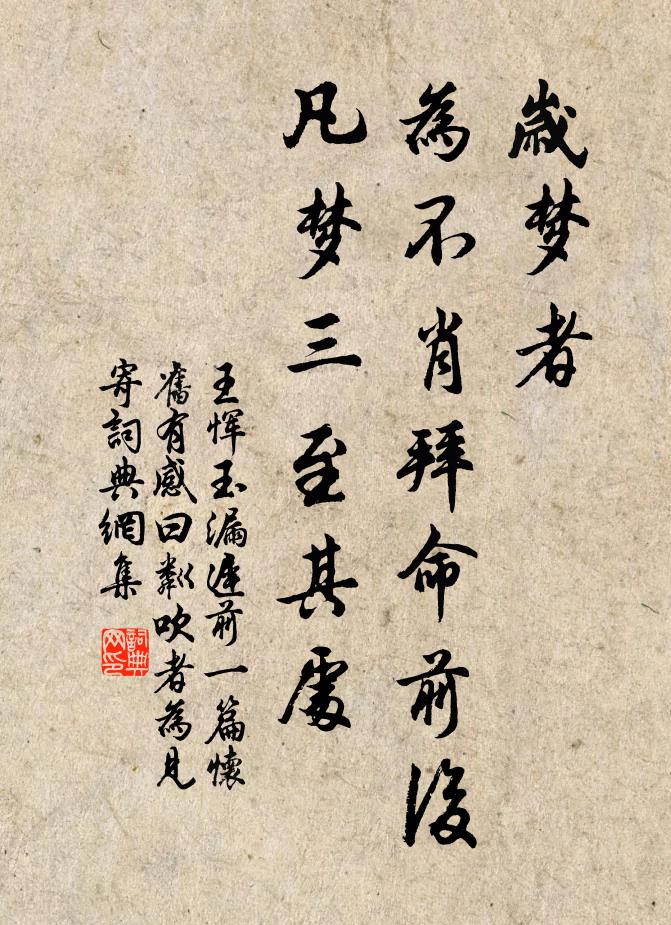 歲梦者
為不肖拜命前後
凡梦三至其處
王惲玉漏遲前一篇懷
舊有感曰歎吹者為見
寄詞典網集
詞典
网印